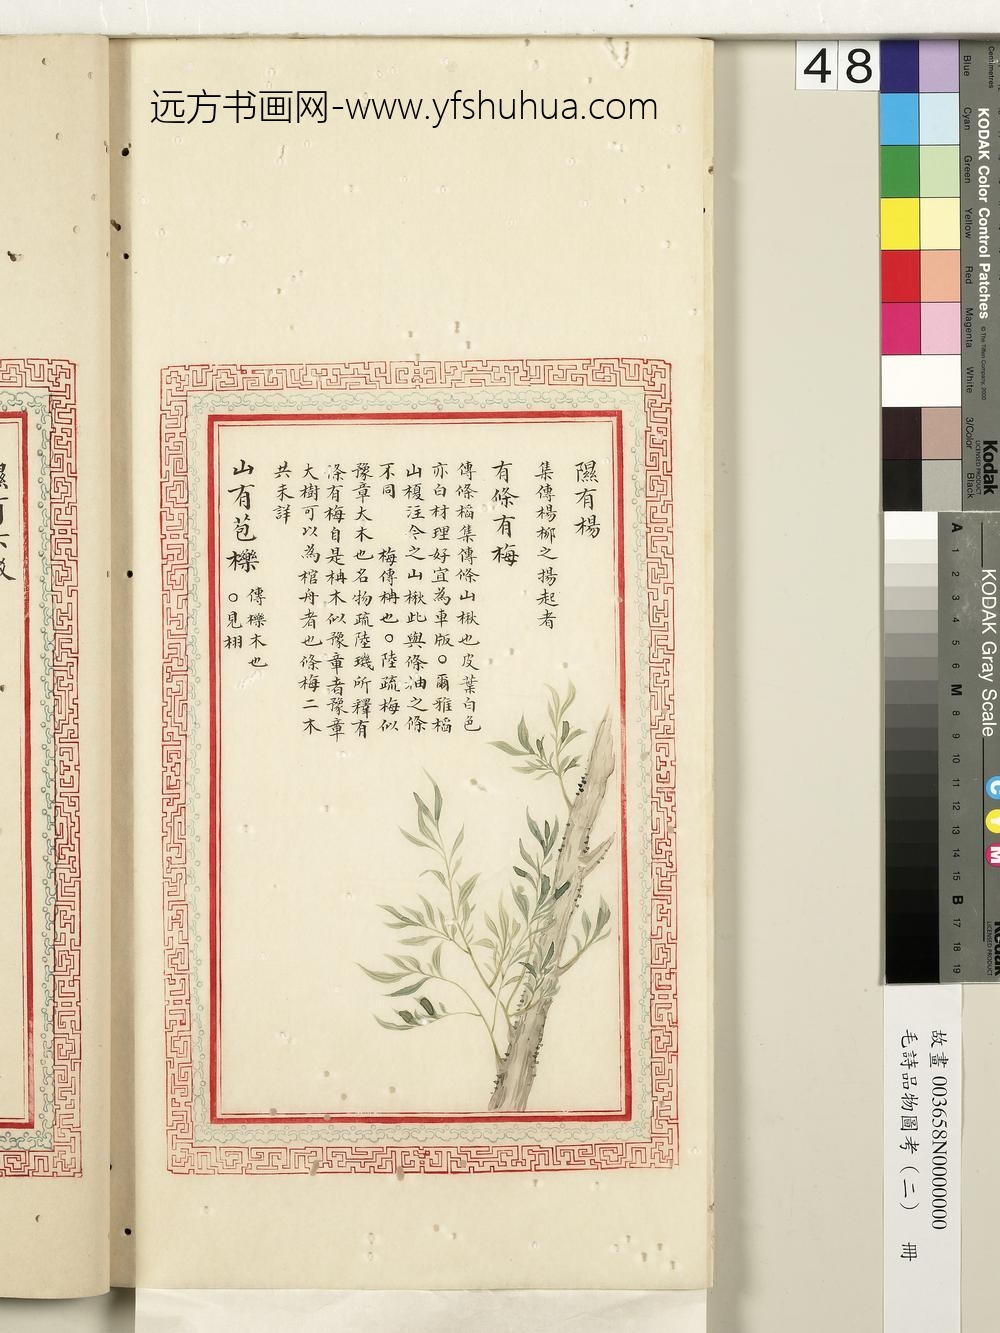 远方书画网-www.yfshuhua.com
48
隰有楊
集傳楊柳之揚起者
有條有梅
傳條槄集傳條山楸也皮葉白色
亦白材理好宜為車版○爾雅槄
山榎注今之山楸此與條油之條
不同 梅傳柟也○陸疏梅似
豫章大木也名物疏陸璣所釋有
條有梅自是柟木似豫章者豫章
大樹可以為棺舟者也條梅二木
共未詳
山有苞櫟
傳櫟木也
○見栩
KODAK Color Control Patches
Blue
Cyan
Green
Yellow
Red
Magenta
White
3/Color
Black
Kodak
LICENSED PRODUCT
KODAK Gray Scale
A 1 2 3 4 5 6 M 8 9 10 11 12 13 14 15 B 17 18 19
C
Y
M
Kodak
LICENSED PRODUCT
故畫 003658N0000000
毛詩品物圖考（二） 冊